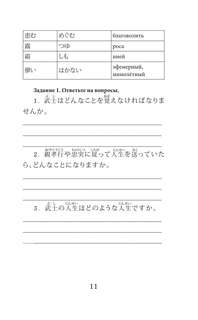 恵む めぐむ благоволить
露 つゆ роса
霜 しも иней
儚い はかない эфемерный, мимолётный
Задание 1. Ответьте на вопросы.
1. 武士はどんなことを覚えなければなりま
せんか。
2. 親孝行や忠実に従って人生を送っていた
ら、どんなことになりますか。
3. 武士の人生はどのような人生ですか。
11